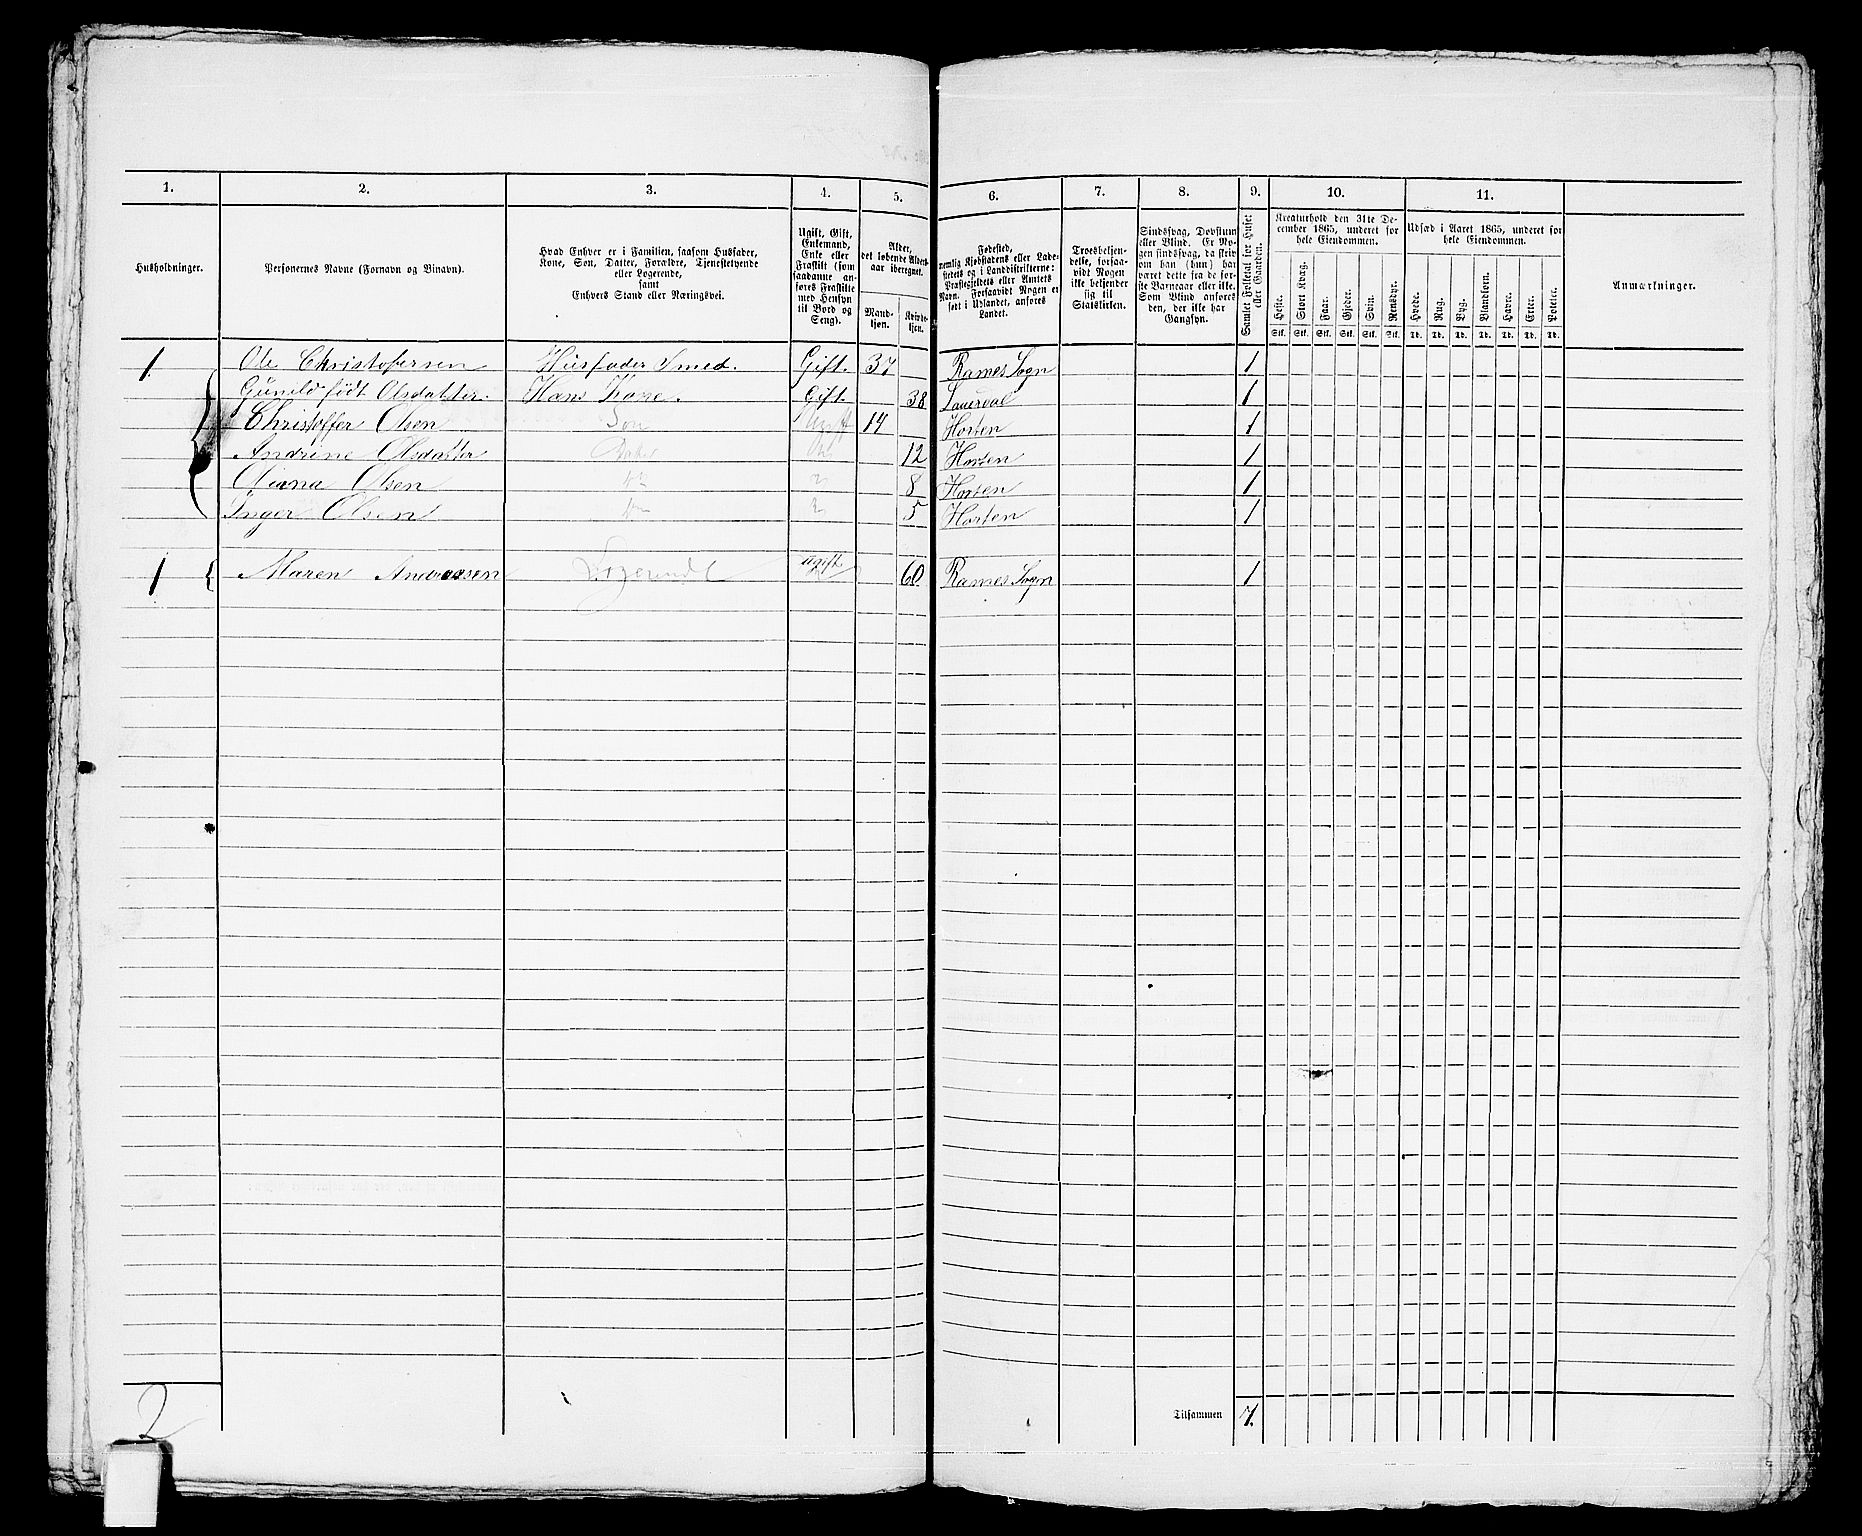 1. 2. 3. 4. 5. 6. 7. 8. 9. 10. 11.
Husholdninger.
Personernes Navne (Fornavn og Binavn).
Hvad Enhver er i Familien, saasom Husfader,
Kone, Søn, Datter, Forældre, Tjenestetyende
eller Logerende,
samt
Enhvers Stand eller Næringsvei.
Ugift, Gift,
Enkemand,
Enke eller
Fraskilt (som
saadanne an-
føres Fraskilte
med Hensyn
til Bord og
Seng).
Alder,
det løbende Alders-
aar iberegnet.
Mand-
kjøn.
Kvinde-
kjøn.
Fødested,
nemlig Kjøbstadens eller Lade-
stedets og i Landdistrikterne:
Præstegjeldets eller Amtets
Navn. Forsaavidt Nogen er
født i Udlandet, anføres
Landet.
Troesbekjen-
delse, forsaa-
vidt Nogen
ikke bekjender
sig til
Statskirken.
Sindssvag, Døvstum
eller Blind. Er No-
gen sindssvag, da skriv
om han (hun) har
været dette fra de før-
ste Barneaar eller ikke.
Som Blind anføres
den, der ikke har
Gangsyn.
Samlet Folketal for Huset
eller Gaarden.
Kreaturhold den 31te De-
cember 1865, underet for
hele Eiendommen.
Heste. Stort Kvæg. Faar. Gjeder. Svin. Rensdyr.
Stk. Stk. Stk. Stk. Stk. Stk.
Udsæd i Aaret 1865, underet for
hele Eiendommen.
Hvede. Rug. Byg. Blandkorn. Havre. Erter. Poteter.
Td. Td. Td. Td. Td. Td. Td.
Anmærkninger.
1 Ole Christofersen Husfader Smed. Gift. 37 Ramnes Sogn 1
Gunild født Olsdatter. Hans Kone. Gift. 38 Laurdal 1
Christoffer Olsen Søn Ugift 14 Horten 1
Andrine Olsdatter 12 Horten 1
Olsen 8 Horten 1
Inger Olsen 5 Horten 1
1 Maren Andreasen Logerende ugift 60 Ramnes Sogn 1
2
Tilsammen 7.